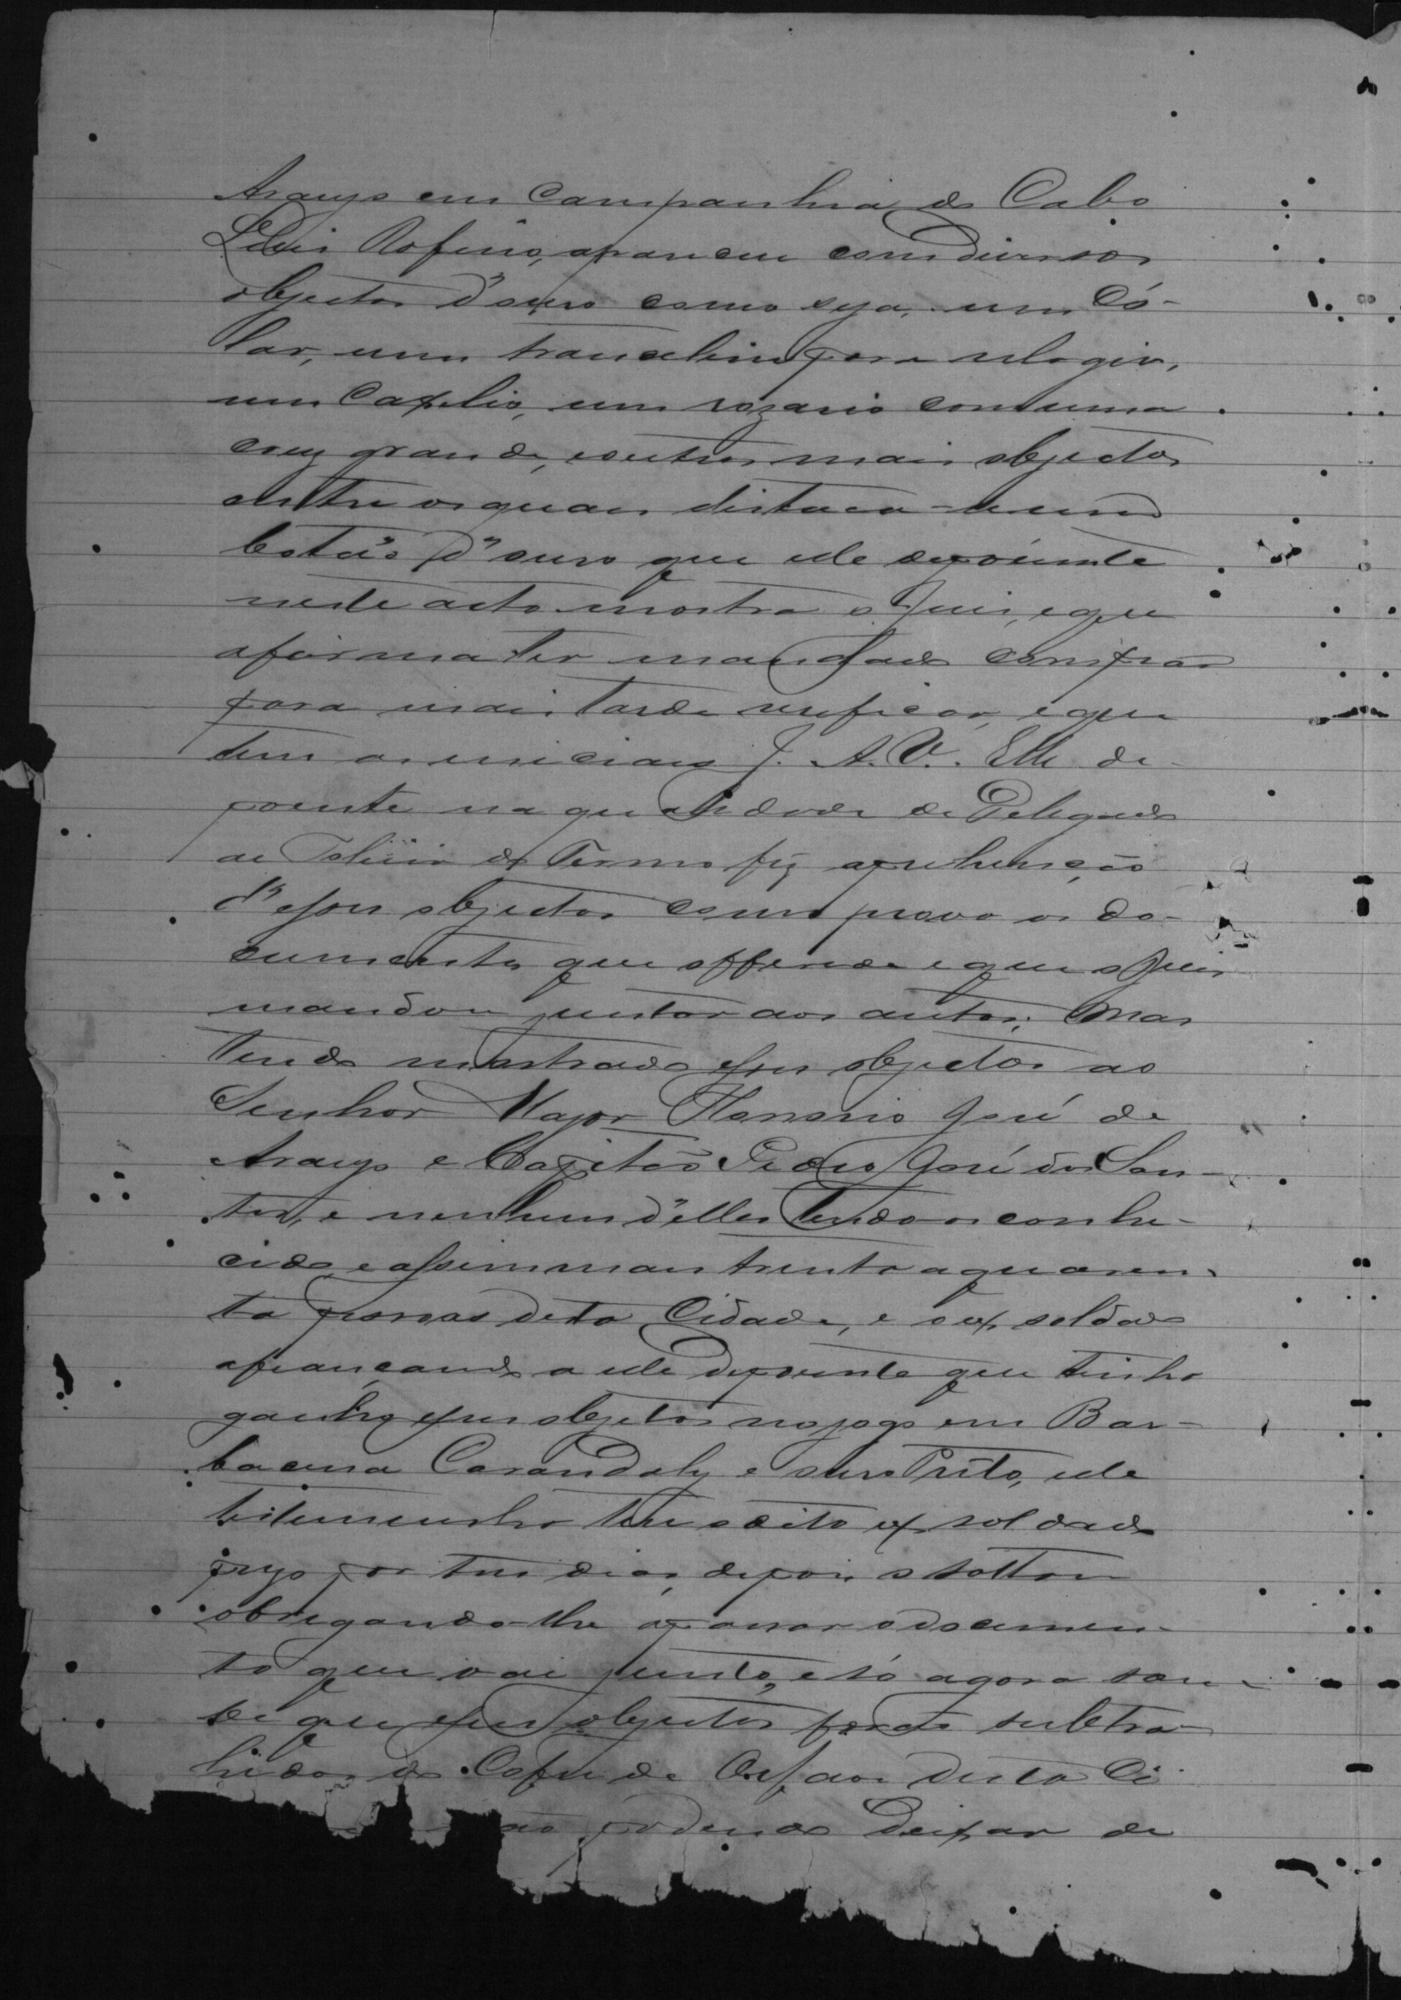 Araujo em companhia do Cabo
Luis Rofino, apareceu com diversos
objectos d'ouro como seja, um Có-
lar, um trancelim para relogio,
um Caxilio, um rozario com uma
cruz grande, e outros mais objectos
entre os quais distaca-se um
botão d'ouro que elle depoente
neste acto mostra o Juis, e que
afirma ter mandado comprar
para mais tarde verificar, e que
tem as iniciaes J. A. V. Elle de-
poente na qualidade de Delegado
de Policia do Termo fez aprehenção
d'esses objectos como prova os do-
cumentos que offerece e que o Juis
mandou juntar aos autos; Mas
tendo mostrado esses objectos ao
Senhor Major Honorio José de
Araujo e Capitão Pedro José dos San-
tos, e nenhum d'elles tendo os conhe-
cido, e assim mais trinta a quaren-
ta pessoas desta Cidade, e o ex soldado
afiançando a elle depoente que tinha
ganho esses objetos no jogo em Bar-
bacena Carandahy e Ouro Preto, elle
testemunha teve o dito ex soldado
prezo por tres dias, depois o soltou
obrigando-lhe a passar o documen-
to que vai junto, e só agora sou-
be que esses objectos forão subtra-
hidos do Cofre de Orfaos desta Ci-
não podendo deixar de